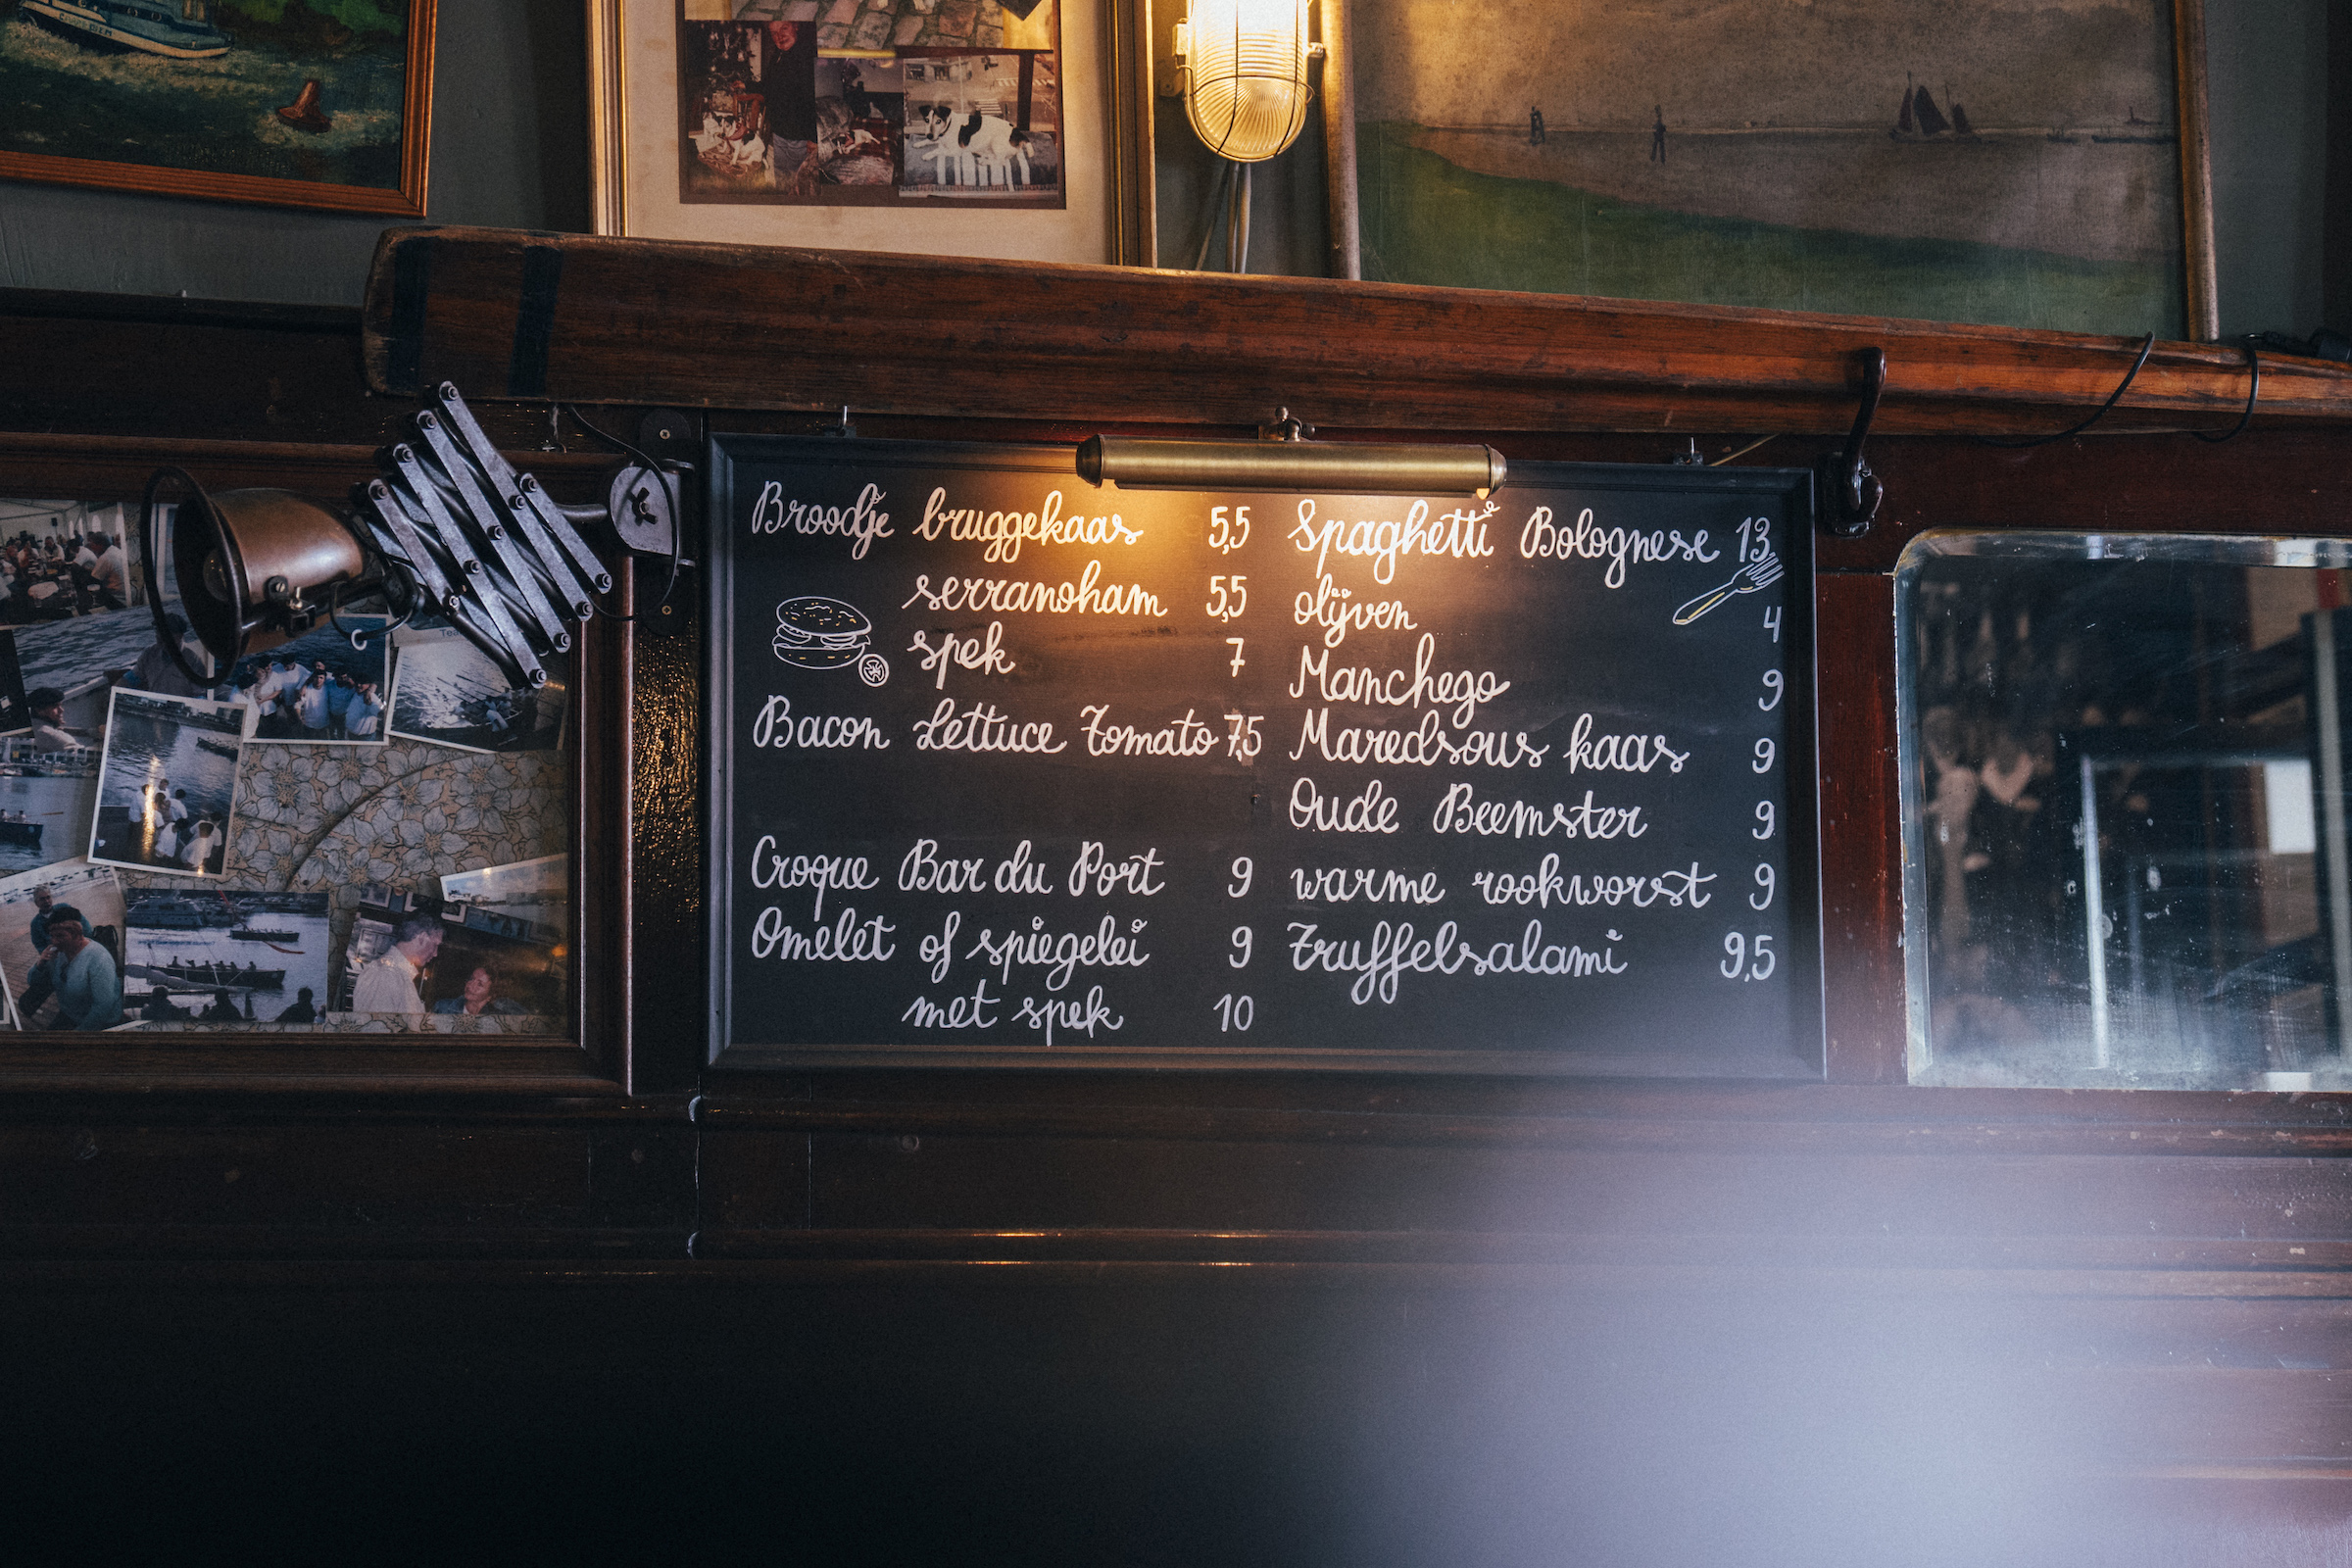 Broodje bruggekaas 5,5
serranoham 5,5
spek 7
Bacon Lettuce Tomato 7,5
Croque Bar du Port 9
Omelet of spiegelei 9
met spek 10
Spaghetti Bolognese 13
olijven 4
Manchego 9
Maredsous kaas 9
Oude Beemster 9
warme rookworst 9
Truffelsalami 9,5